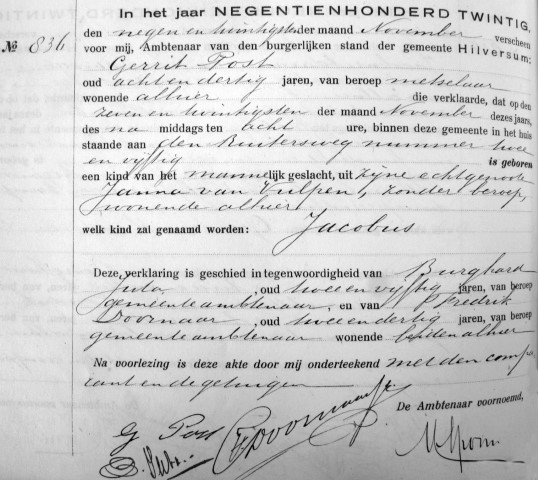 In het jaar NEGENTIENHONDERD TWINTIG,
den negen en twintigsten der maand November verscheen
№ 836 voor mij, Ambtenaar van den burgerlijken stand der gemeente Hilversum:
Gerrit Post
oud acht en dertig jaren, van beroep metselaar
wonende alhier die verklaarde, dat op den
zeven en twintigsten der maand November dezes jaars,
des na middags ten acht ure, binnen deze gemeente in het huis
staande aan den Ruitersweg nummer twee
en vijftig is geboren
een kind van het mannelijk geslacht, uit zijne echtgenoote
Janna van Vulpen, zonder beroep,
wonende alhier
welk kind zal genaamd worden: Jacobus
Deze verklaring is geschied in tegenwoordigheid van Burghard
, oud twee en vijftig jaren, van beroep
gemeenteambtenaar, en van Fredrik
Doornaar, oud twee en dertig jaren, van beroep
gemeenteambtenaar wonende beiden alhier
Na voorlezing is deze akte door mij onderteekend met den compa,
rant en de getuigen
De Ambtenaar voornoemd,
G Post